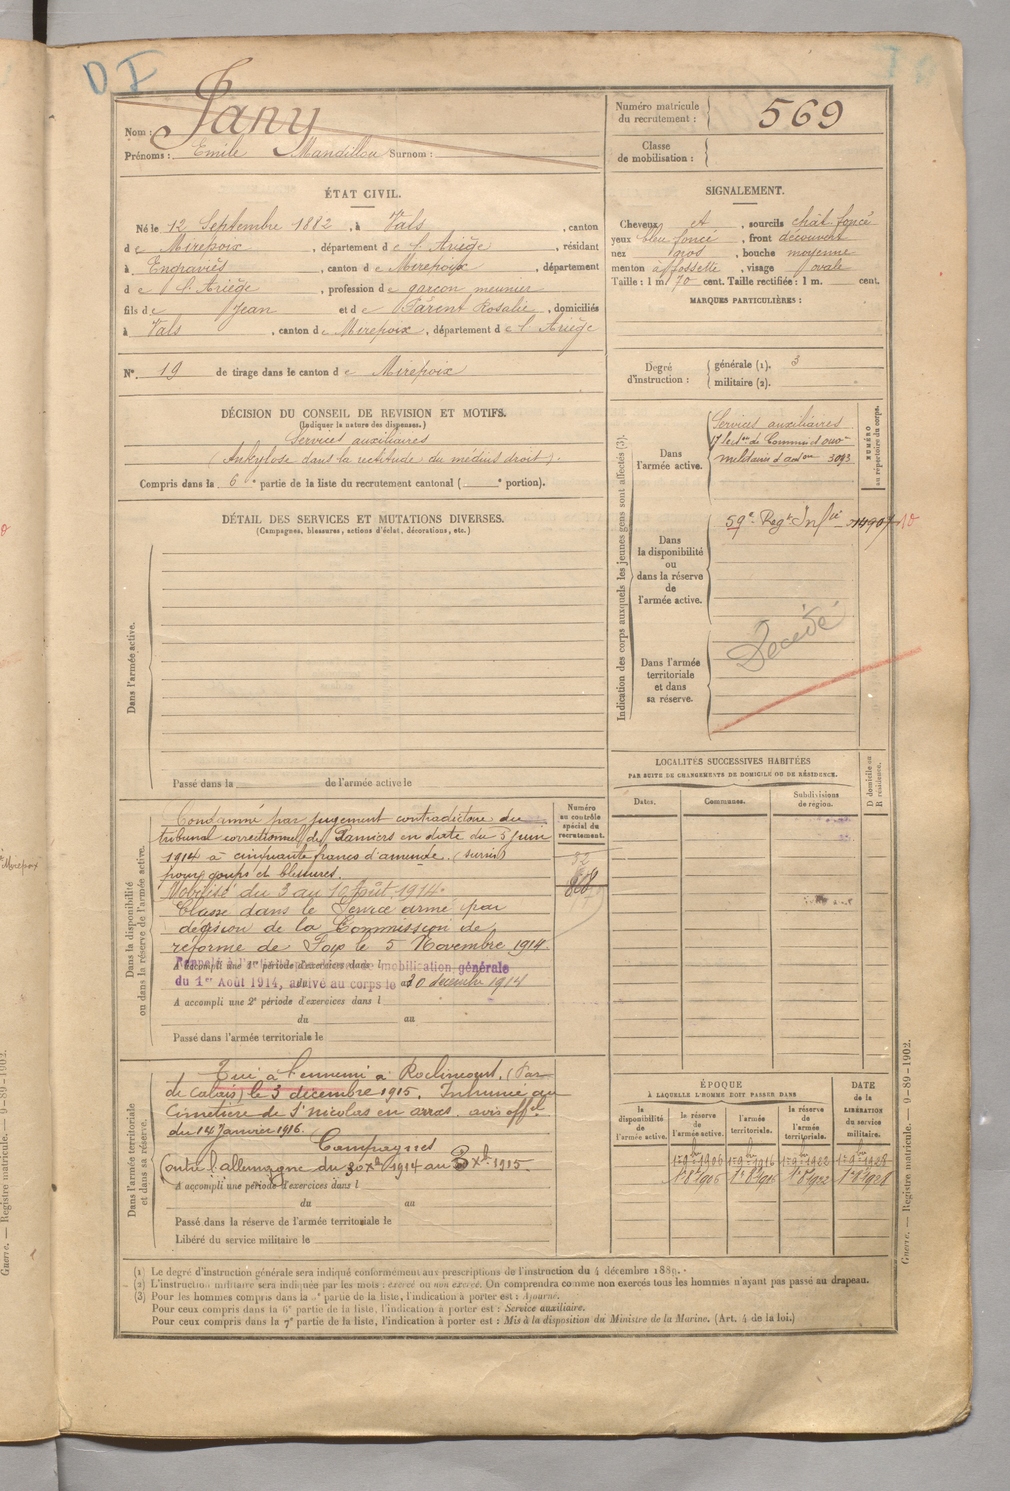 D F
Nom : Jany
Prénoms : Emile Mandillou Surnom :
Numéro matricule du recrutement : 569
Classe de mobilisation :
ÉTAT CIVIL.
Né le 12 Septembre 1882, à Vals, canton
de Mirepoix, département de l'Ariège, résidant
à Engraviès, canton de Mirepoix, département
de l'Ariège, profession de garçon meunier
fils de Jean et de Parent Rosalie, domiciliés
à Vals, canton de Mirepoix, département de l'Ariège
N° 19 de tirage dans le canton de Mirepoix
SIGNALEMENT.
Cheveux et, sourcils chât. foncé
yeux bleu foncé, front découvert
nez gros, bouche moyenne
menton à fossette, visage ovale
Taille : 1 m. 70 cent. Taille rectifiée : 1 m. cent.
MARQUES PARTICULIÈRES :
Degré d'instruction : générale (1). 3
militaire (2).
DÉCISION DU CONSEIL DE REVISION ET MOTIFS.
(Indiquer la nature des dispenses.)
Services auxiliaires
(Ankylose dans la rectitude du médius droit).
Compris dans la 6e partie de la liste du recrutement cantonal ( e portion).
DÉTAIL DES SERVICES ET MUTATIONS DIVERSES.
(Campagnes, blessures, actions d'éclat, décorations, etc.)
Dans l'armée active.
Passé dans la de l'armée active le
Indication des corps auxquels les jeunes gens sont affectés (3).
NUMÉRO au répertoire du corps.
Dans l'armée active.
Services auxiliaires
17e
militaires 3093
Dans la disponibilité ou dans la réserve de l'armée active.
59e Regt Infie
Dans l'armée territoriale et dans sa réserve.
Décédé
LOCALITÉS SUCCESSIVES HABITÉES
PAR SUITE DE CHANGEMENTS DE DOMICILE OU DE RÉSIDENCE.
D domicile ou R résidence.
Dates.
Communes.
Subdivisions de région.
Dans la disponibilité ou dans la réserve de l'armée active.
Numéro au contrôle spécial du recrutement.
868
Condamné par jugement contradictoire du
tribunal correctionnel de Pamiers en date du 5 juin
1914 à cinquante francs d'amende. (sursis)
pour coups et blessures.
Mobilisé du 3 au 10 Août 1914.
Classé dans le Service armé par
décision de la Commission de
réforme de Foix le 5 Novembre 1914.
A accompli une 1re période d'exercices dans l
mobilisation générale
du 1er Août 1914, arrivé au corps le 20 décembre 1914
A accompli une 2e période d'exercices dans l
du au
Passé dans l'armée territoriale le
Dans l'armée territoriale et dans sa réserve.
Tué à l'ennemi à Roclincourt, (Pas
de Calais) le 3 décembre 1915. Inhumé au
Cimetière de St Nicolas en arras. avis offel
du 14 Janvier 1916.
Campagnes
Contre l'allemagne du 20 Xbre 1914 au 3 Xbre 1915.
A accompli une période d'exercices dans l
du au
Passé dans la réserve de l'armée territoriale le
Libéré du service militaire le
ÉPOQUE
À LAQUELLE L'HOMME DOIT PASSER DANS
DATE de la LIBÉRATION du service militaire.
la disponibilité de l'armée active.
la réserve de l'armée active.
l'armée territoriale.
la réserve de l'armée territoriale.
1er 9bre 1906 1er 9bre 1916 1er 9bre 1922 1er 9bre 1928
(1) Le degré d'instruction générale sera indiqué conformément aux prescriptions de l'instruction du 4 décembre 1889.
(2) L'instruction militaire sera indiquée par les mots : exercé ou non exercé. On comprendra comme non exercés tous les hommes n'ayant pas passé au drapeau.
(3) Pour les hommes compris dans la 5e partie de la liste, l'indication à porter est : Ajourné.
Pour ceux compris dans la 6e partie de la liste, l'indication à porter est : Service auxiliaire.
Pour ceux compris dans la 7e partie de la liste, l'indication à porter est : Mis à la disposition du Ministre de la Marine. (Art. 4 de la loi.)
Guerre. — Registre matricule. — 9-89-1902.